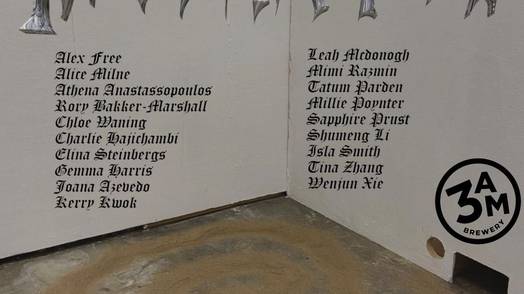 Alex Free
Alice Milne
Athena Anastassopoulos
Rory Bakker-Marshall
Chloe Waning
Charlie Hajichambi
Elina Steinbergs
Gemma Harris
Joana Azevedo
Kerry Kwok
Leah Mcdonogh
Mimi Razmin
Tatum Parden
Millie Poynter
Sapphire Prust
Shumeng Li
Isla Smith
Tina Zhang
Wenjun Xie
3AM
BREWERY